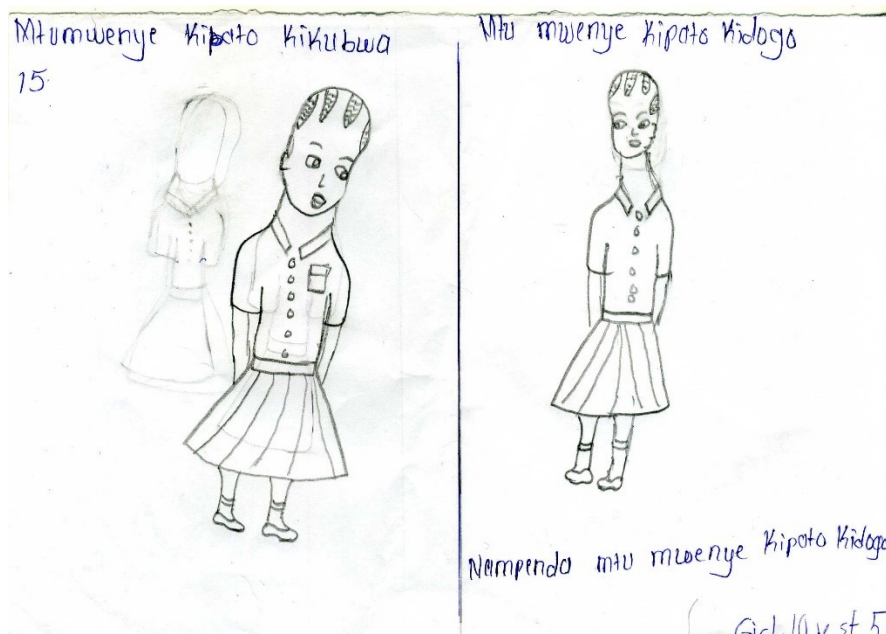 Mtumwenye Kipato Kikubwa
15
Mtu mwenye Kipato Kidogo
Nampenda mtu mwenye Kipato Kidogo
st 5